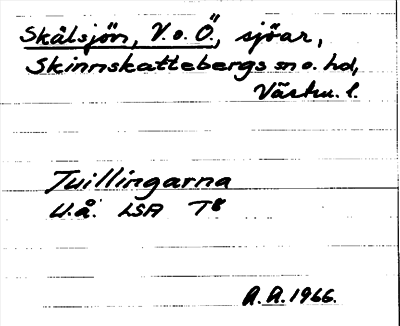 Skålsjön, V. o. Ö., sjöar,
Skinnskattebergs sn o. hd,
Västm. l.
Tvillingarna
U.å. LSA T8
A.A. 1966.